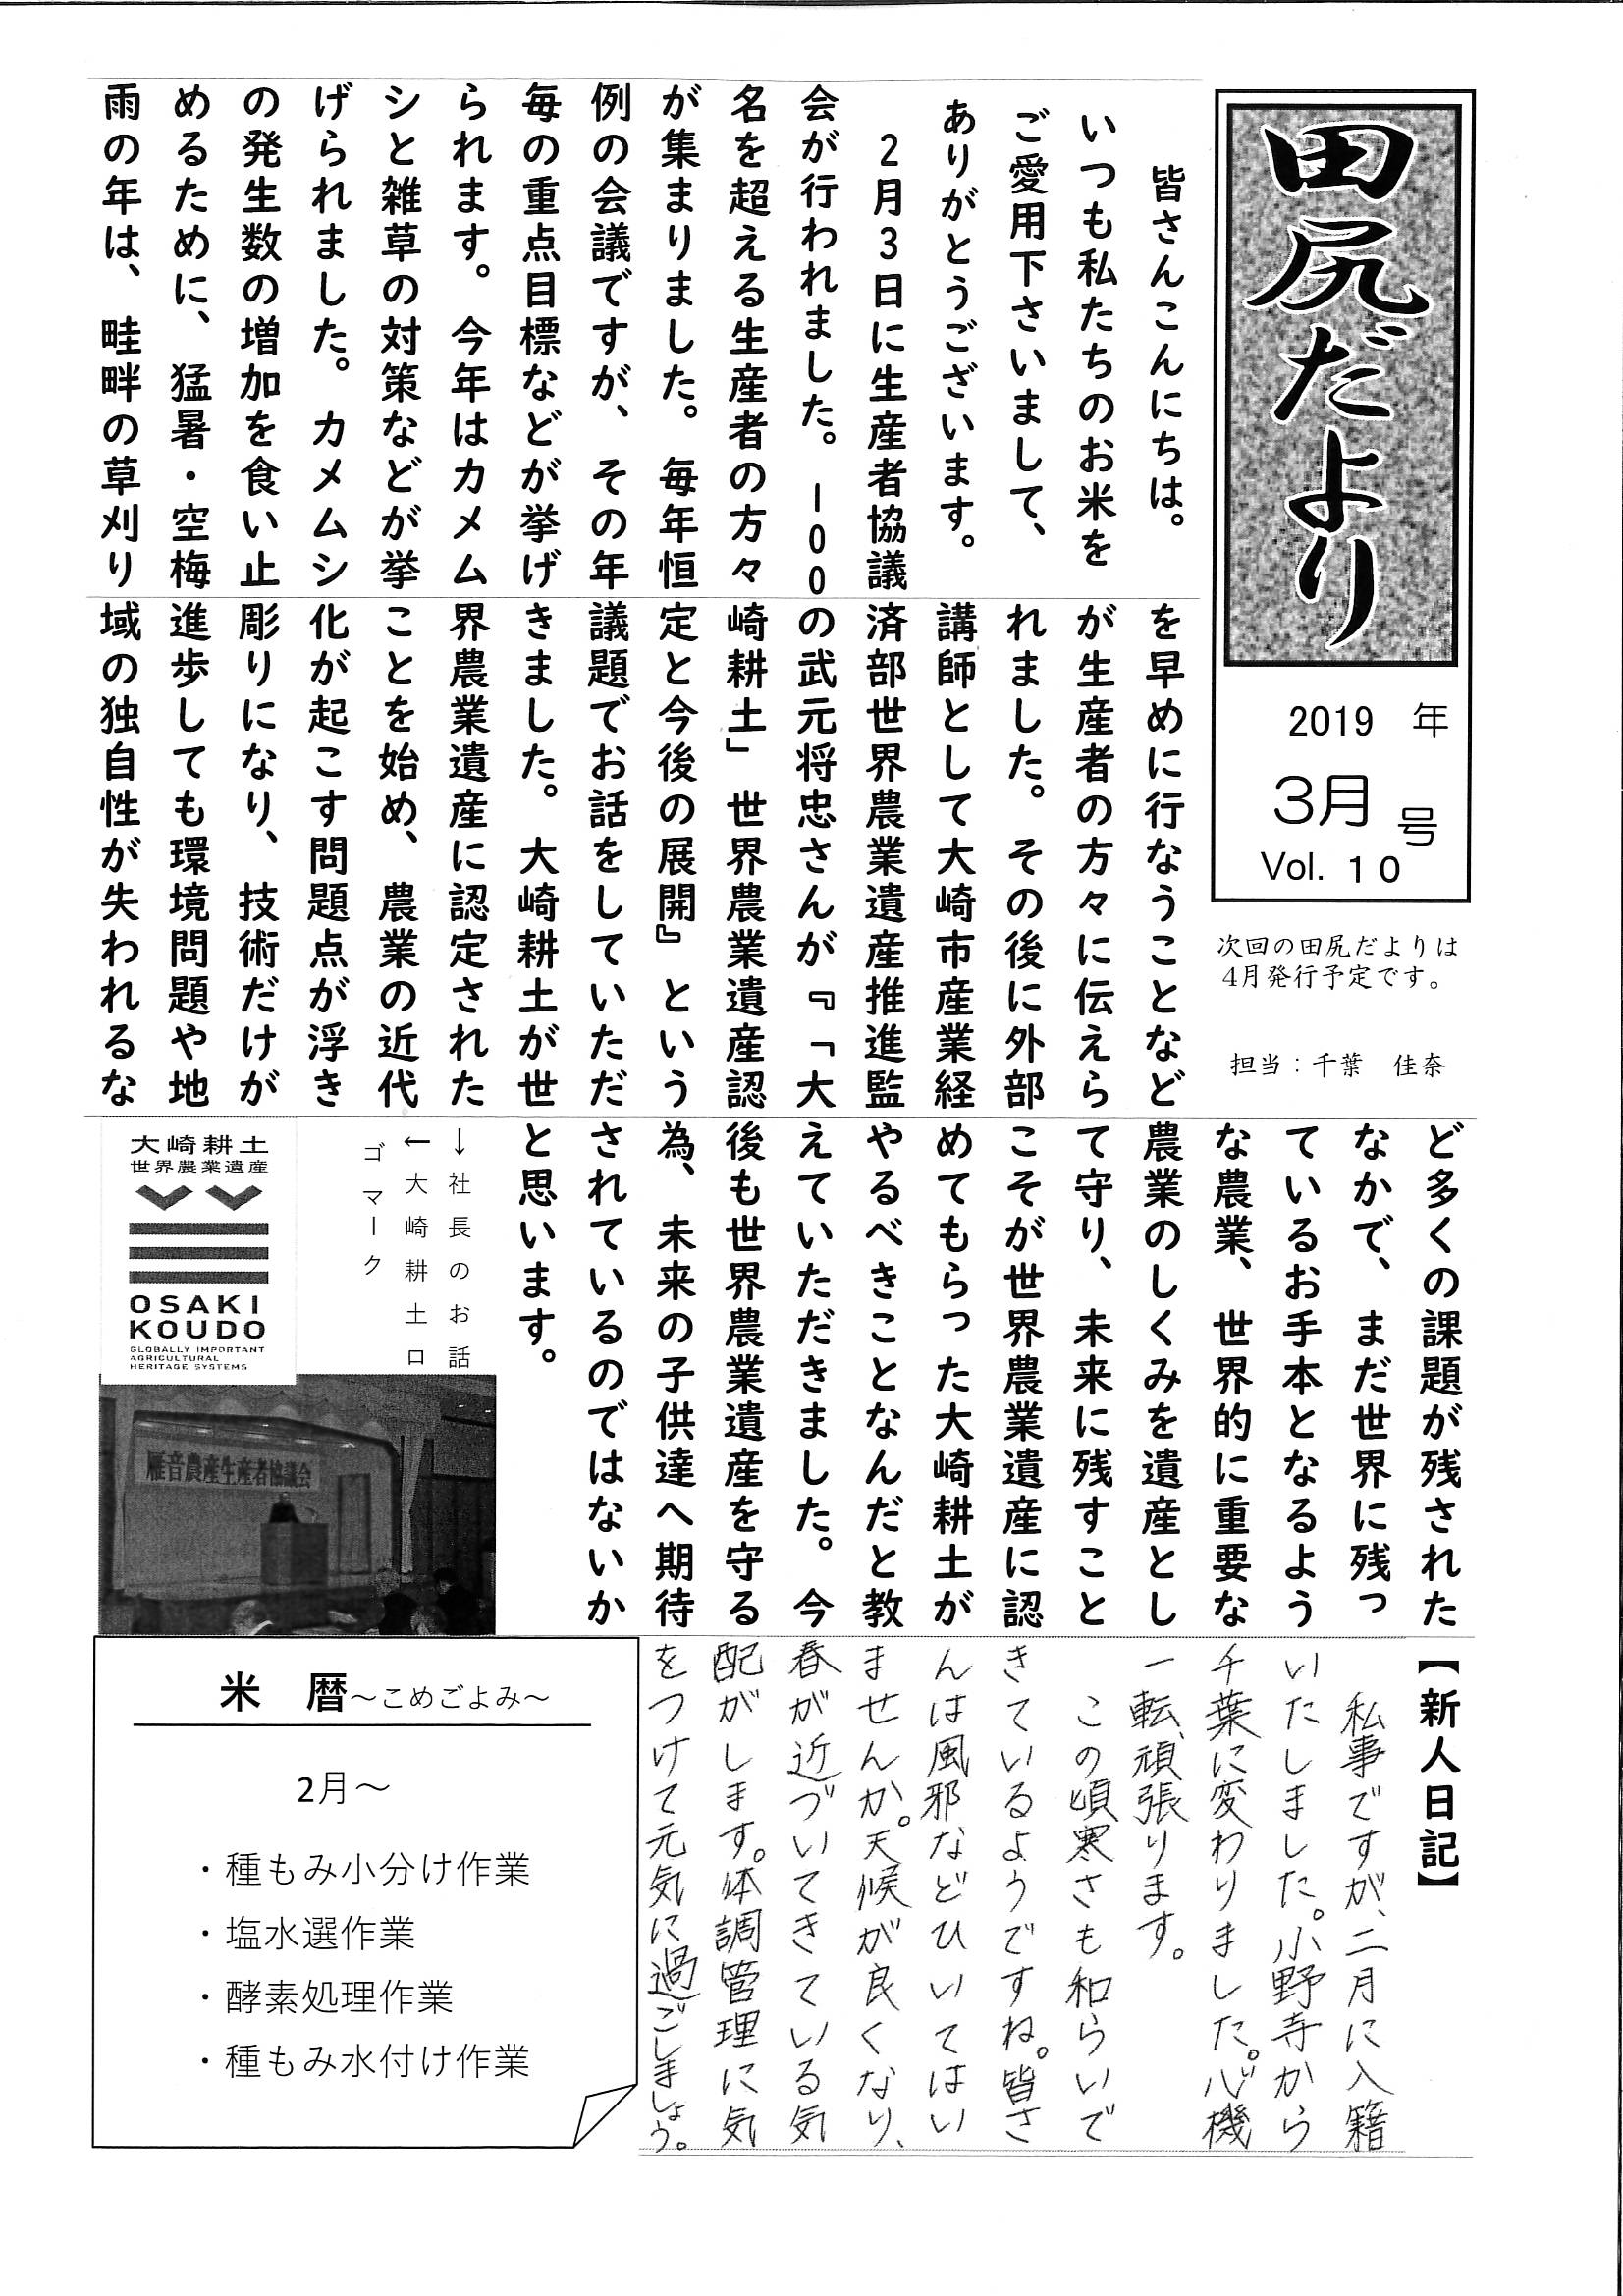 田尻だより
2019 年
3月 号
Vol. 10
次回の田尻だよりは
4月発行予定です。
担当：千葉　佳奈
皆さんこんにちは。
いつも私たちのお米を
ご愛用下さいまして、
ありがとうございます。
2月3日に生産者協議
会が行われました。100
名を超える生産者の方々
が集まりました。毎年恒
例の会議ですが、その年
毎の重点目標などが挙げ
られます。今年はカメム
シと雑草の対策などが挙
げられました。カメムシ
の発生数の増加を食い止
めるために、猛暑・空梅
雨の年は、畦畔の草刈り
を早めに行なうことなど
が生産者の方々に伝えら
れました。その後に外部
講師として大崎市産業経
済部世界農業遺産推進監
の武元将忠さんが『「大
崎耕土」世界農業遺産認
定と今後の展開』という
議題でお話をしていただ
きました。大崎耕土が世
界農業遺産に認定された
ことを始め、農業の近代
化が起こす問題点が浮き
彫りになり、技術だけが
進歩しても環境問題や地
域の独自性が失われるな
ど多くの課題が残された
なかで、まだ世界に残っ
ているお手本となるよう
な農業、世界的に重要な
農業のしくみを遺産とし
て守り、未来に残すこと
こそが世界農業遺産に認
めてもらった大崎耕土が
やるべきことなんだと教
えていただきました。今
後も世界農業遺産を守る
為、未来の子供達へ期待
されているのではないか
と思います。
↓社長のお話
←大崎耕土ロ
ゴマーク
大崎耕土
世界農業遺産
OSAKI
KOUDO
GLOBALLY IMPORTANT
AGRICULTURAL
HERITAGE SYSTEMS
雁音農産生産者協議会
【新人日記】
私事ですが、二月に入籍
いたしました。小野寺から
千葉に変わりました。心機
一転、頑張ります。
この頃寒さも和らいで
きているようですね。皆さ
んは風邪などひいてはい
ませんか。天候が良くなり、
春が近づいてきている気
配がします。体調管理に気
をつけて元気に過ごしましょう。
米　暦～こめごよみ～
2月～
・種もみ小分け作業
・塩水選作業
・酵素処理作業
・種もみ水付け作業